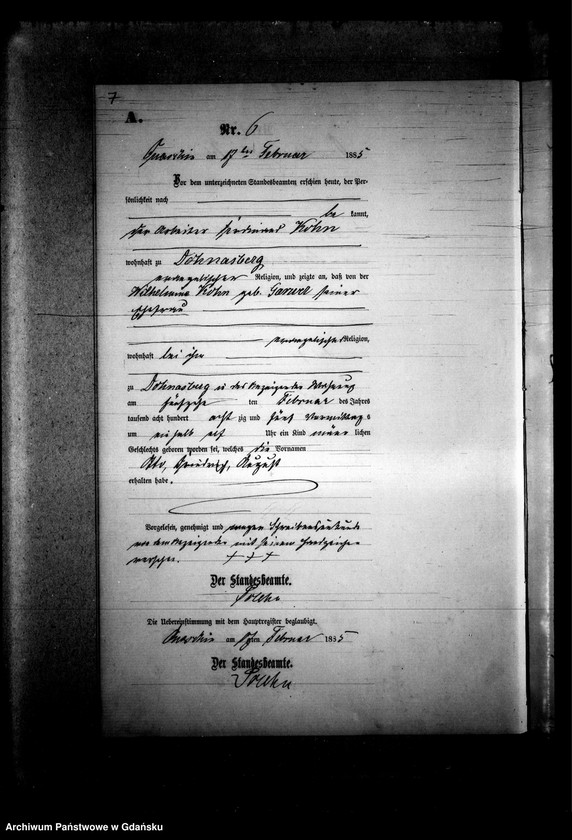 7
A.
Nr. 6
am 17ten Februar 1885
Vor dem unterzeichneten Standesbeamten erschien heute, der Per-
sönlichkeit nach
be kannt,
der Arbeiter Ferdinand Kohn
wohnhaft zu Dohnasberg
evangelischer Religion, und zeigte an, daß von der
Wilhelmine Kohn geb. seiner
Ehefrau
evangelischer Religion,
wohnhaft bei ihm
zu Dohnasberg in des Anzeigenden Wohnung
am ten Februar des Jahres
tausend acht hundert acht zig und fünf Vormittags
um elf Uhr ein Kind männ lichen
Geschlechts geboren worden sei, welches die Vornamen
Otto, Friedrich, August
erhalten habe.
Vorgelesen, genehmigt und wegen Schreibensunkunde
von dem Anzeigenden mit seinem Handzeichen
versehen. + + +
Der Standesbeamte.
Die Uebereinstimmung mit dem Hauptregister beglaubigt.
am 17ten Februar 1885
Der Standesbeamte.
Archiwum Państwowe w Gdańsku